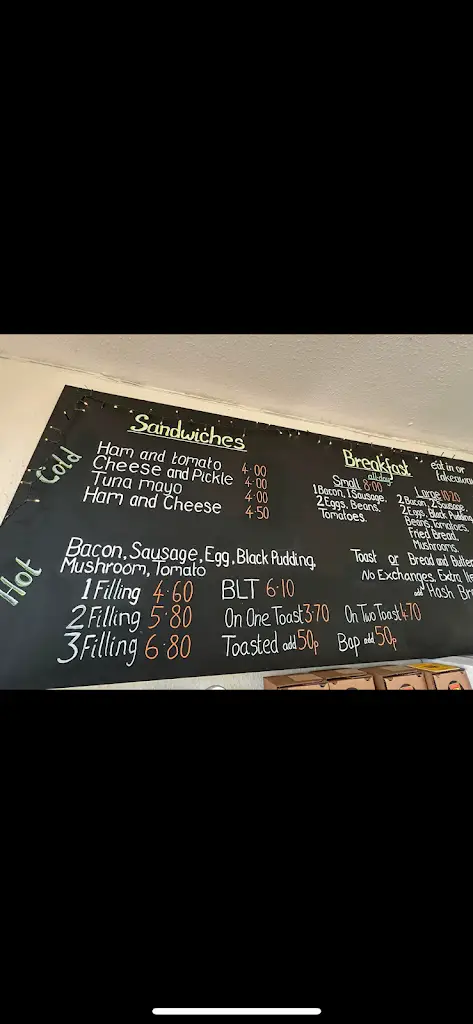 Sandwiches
Cold
Ham and tomato 4.00
Cheese and Pickle 4.00
Tuna mayo 4.00
Ham and Cheese 4.50
Hot
Bacon, Sausage, Egg, Black Pudding,
Mushroom, Tomato
1 Filling 4.60
2 Filling 5.80
3 Filling 6.80
BLT 6.10
On One Toast 3.70 On Two Toast 4.70
Toasted add 50p Bap add 50p
Breakfast
all day
eat in or
takeaway
Small 8.00
1 Bacon, 1 Sausage,
2 Eggs, Beans,
Tomatoes.
Large 10.20
2 Bacon, 2 Sausage,
2 Eggs, Black Pudding
Beans, Tomatoes,
Fried Bread,
Mushrooms.
Toast or Bread and Butter
No Exchanges, Extra
add Hash Br